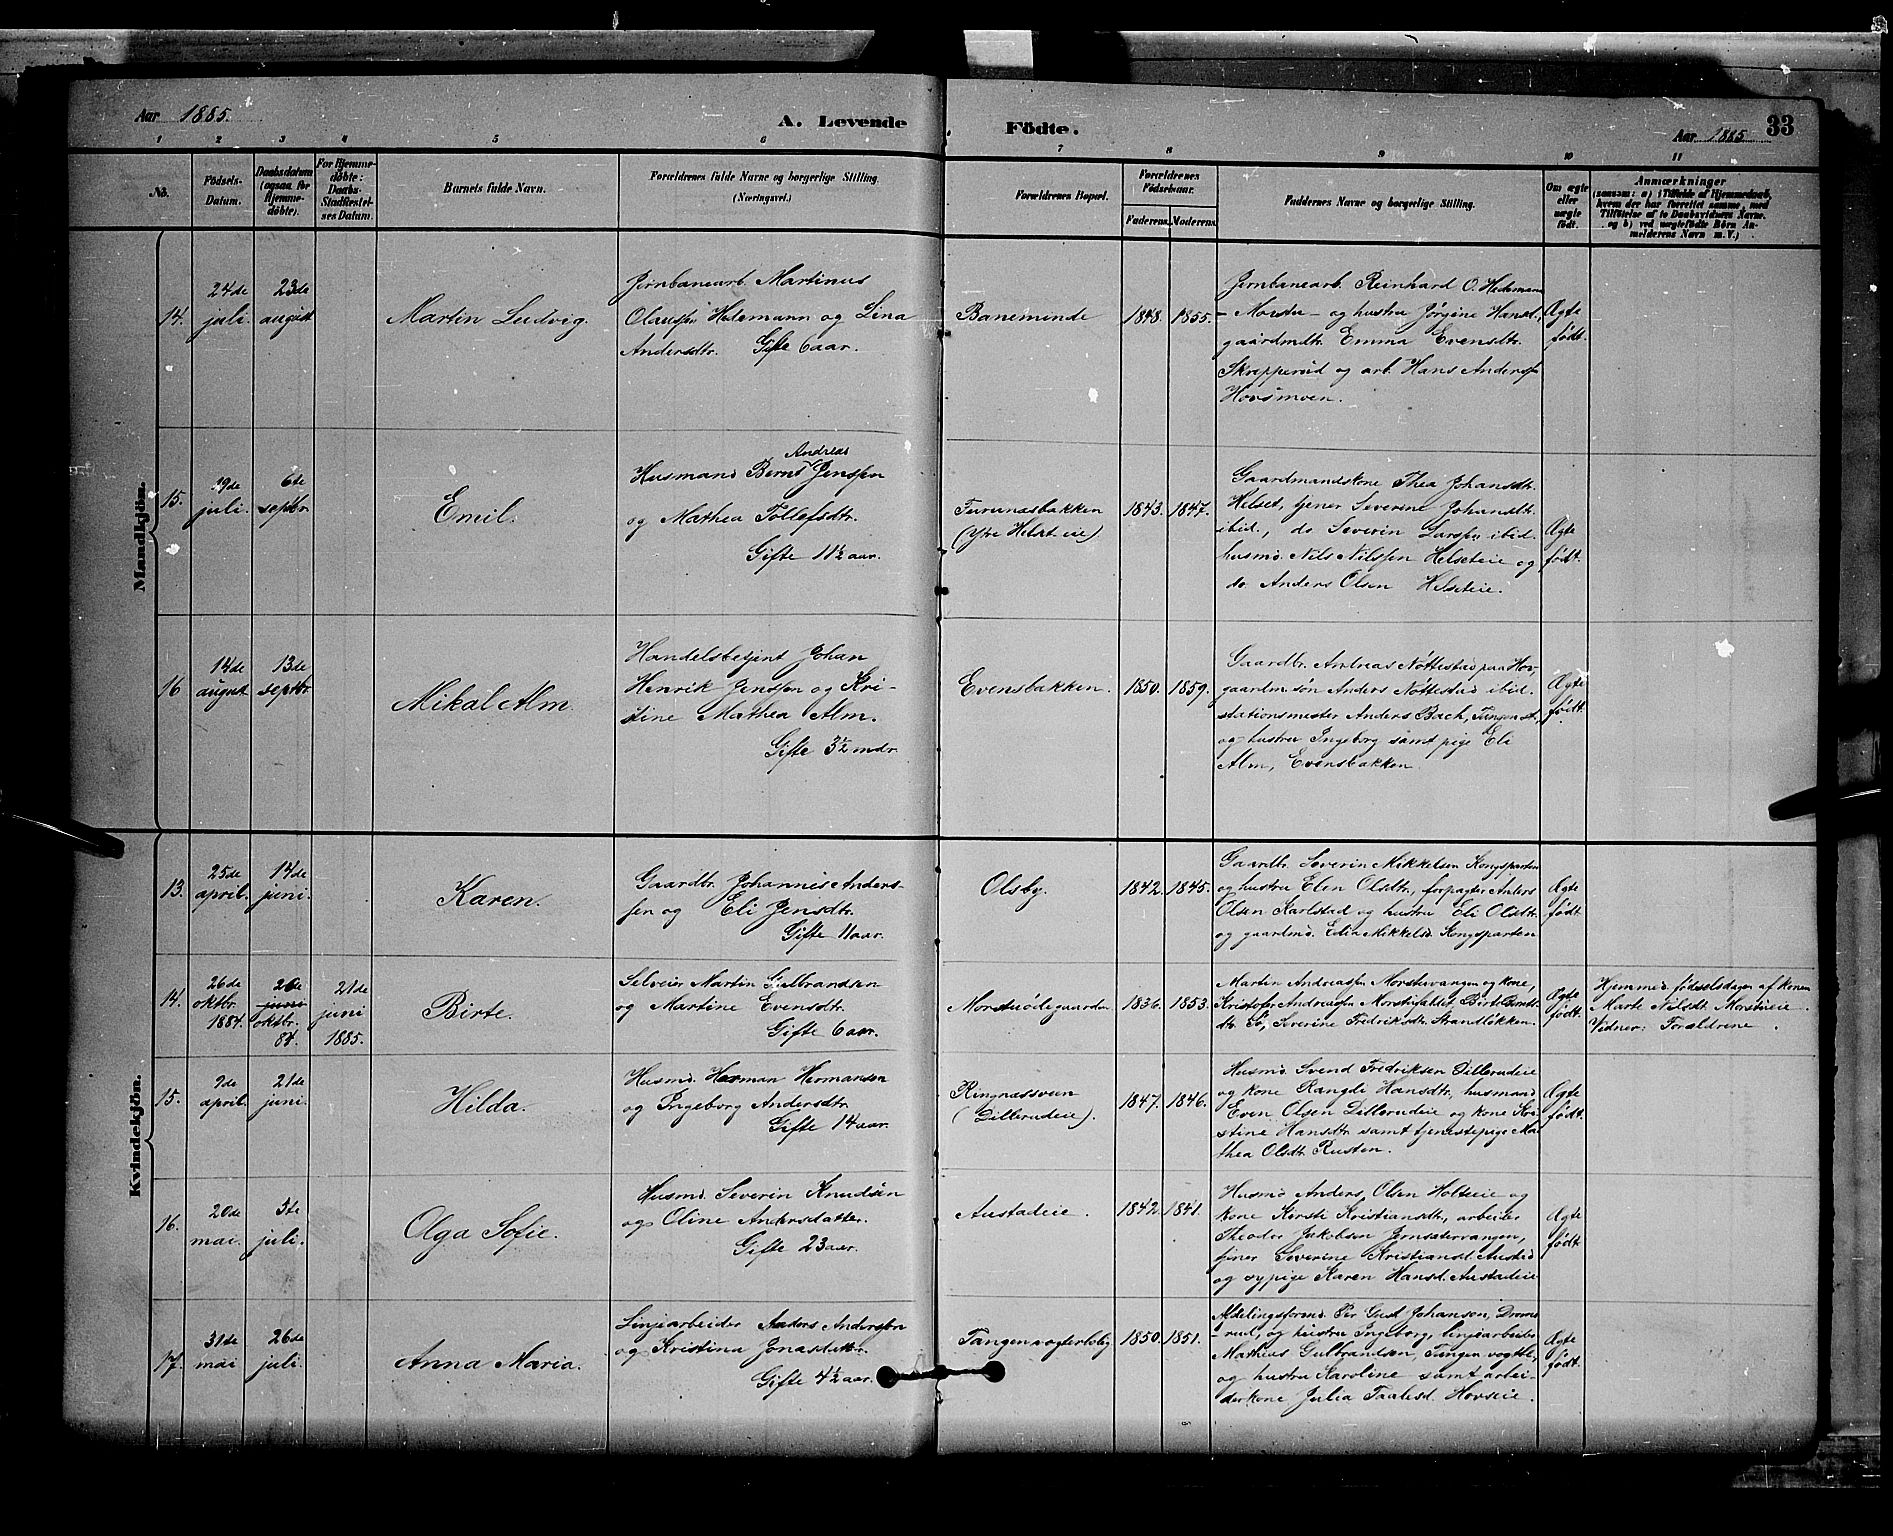 Aar 1885.
A. Levende Födte.
Aar 1885
33
1 2 3 4 5 6 7 8 9 10 11
No.
Födsels-
Datum.
Daabsdatum
(ogsaa for
Hjemme-
döbte).
For Hjemme-
döbte:
Daabs-
Stadfæstel-
ses Datum.
Barnets fulde Navn.
Forældrenes fulde Navne og borgerlige Stilling.
(Næringsvei.)
Forældrenes Bopæl.
Forældrenes
Födselsaar.
Faderens. Moderens.
Faddernes Navne og borgerlige Stilling.
Om ægte
eller
uægte
födt.
Anmærkninger
(saasom: a) i Tilfælde af Hjemmedaab,
hvem der har forrettet samme, med
Tilföielse af to Daabsvidners Navne.
og b) ved uægtefödte Börn An-
melderens Navn m. V.)
Mandkjön.
14.
24de
juli.
23de
august
Martin Ludvig.
Jernbanearb. Martinus
Olaussen Hedemann og Lina
Andersdtr. Gifte 6 aar.
Baneminde
1848. 1855.
Jernbanearb. Reinhard O. Hedemann
- Morstu - og hustru Jørgine Hansd.,
gaardmdtr. Emma Evensdtr.
Skrepperud og arb. Hans Anderss
Hovsmoen.
Ægte
født.
15.
19de
juli.
6te
septbr
Emil.
Andreas
Husmand Bernt Jenssen
og Mathea Tollefsdtr.
Gifte 11½ aar.
Furunæsbakken
(Ytre Helset eie)
1843. 1847.
Gaardmandskone Thea Johansdtr.
Helset, tjener Severine Johansdtr.
ibid., do Severin Larssen ibid.
husmd. Nils Nilssen Helseteie og
do Anders Olsen Helseteie.
Ægte
født.
16
14de
august
13de
septbr
Mikal Alm.
Handelsbetjent Johan
Henrik Jenssen og Kri-
stine Mathea Alm.
Gifte 3½ mdr.
Evensbakken.
1850. 1859.
Gaardbr. Andreas Nøttestad paa Hov,
gaardm.søn Anders Nøttestad ibid.
stationsmester Anders Bach, Tangen st.
og hustru Ingeborg samt pige Eli
Alm, Evensbakken.
Ægte
født.
Kvindekjön.
13.
25de
april.
14de
juni.
Karen.
Gaardbr. Johannis Anders-
sen og Eli Jensdtr.
Gifte 11 aar.
Olsby.
1842. 1845.
Gaardbr. Severin Mikkelsen Kongsparten
og hustru Elen Olsdtr., forpagter Anders
Olsen Karlstad og hustru Eli Olsdtr.
og gaardmd. Edin Mikkelsd. Kongsparten
Ægte
født
14.
26de
oktbr.
1884.
26de
juni
oktbr.
84.
21de
juni
1885.
Birte.
Selveier Martin Gulbrandsen
og Martine Evensdtr.
Gifte 6 aar.
Morstuødegaarden
1836. 1853.
Martin Andreassen Morstuvangen og kone,
Kristofer Andreassen Morstufaldet Birte Berntsd
Sø, Severine Fredriksdtr. Strandløkken.
Ægte
født.
Hjemmed. fødselsdagen af konen
Marte Nilsdt. Morstueie.
Vidner: Forældrene.
15.
9de
april.
21de
juni.
Hilda.
Husmd. Herman Hermansen
og Ingeborg Andersdtr.
Gifte 14 aar.
Ringnæssveen
(Dillerudeie).
1847. 1846.
Husmd. Svend Fredriksen Dillerudeie
og kone Rangdi Hansdtr., husmand
Even Olsen Dillerudeie og kone Kri-
stine Hansdtr. samt tjenestepige Ma-
thea Olsdtr. Rusten.
Ægte
født.
16.
20de
mai.
5te
juli.
Olga Sofie.
Husmd. Severin Knudsen
og Oline Andersdatter.
Gifte 23 aar.
Austadeie.
1842. 1841.
Husmd. Anders Olsen Holteeie og
kone Kersti Kristiansdtr., arbeider
Theodor Jakobsen Jernsætervangen,
tjener Severine Kristiansd. Austad
og sypige Karen Hansd. Austadeie
Ægte
født
17.
31de
mai
26de
juli.
Anna Maria.
Linjearbeider Anders Anderssen
og Kristina Jonasdatter.
Gifte 4½ aar.
Tangen vogterbolig
1850. 1851.
Afdelingsformd. Per Gust. Johansen, Drome-
rud, og hustru Ingeborg, linjearbeider
Mathias Gulbrandsen, Tangen vogtb.,
og hustru Karoline samt arbei-
derkone Julia Taalesd. Hovseie.
Ægte
født.